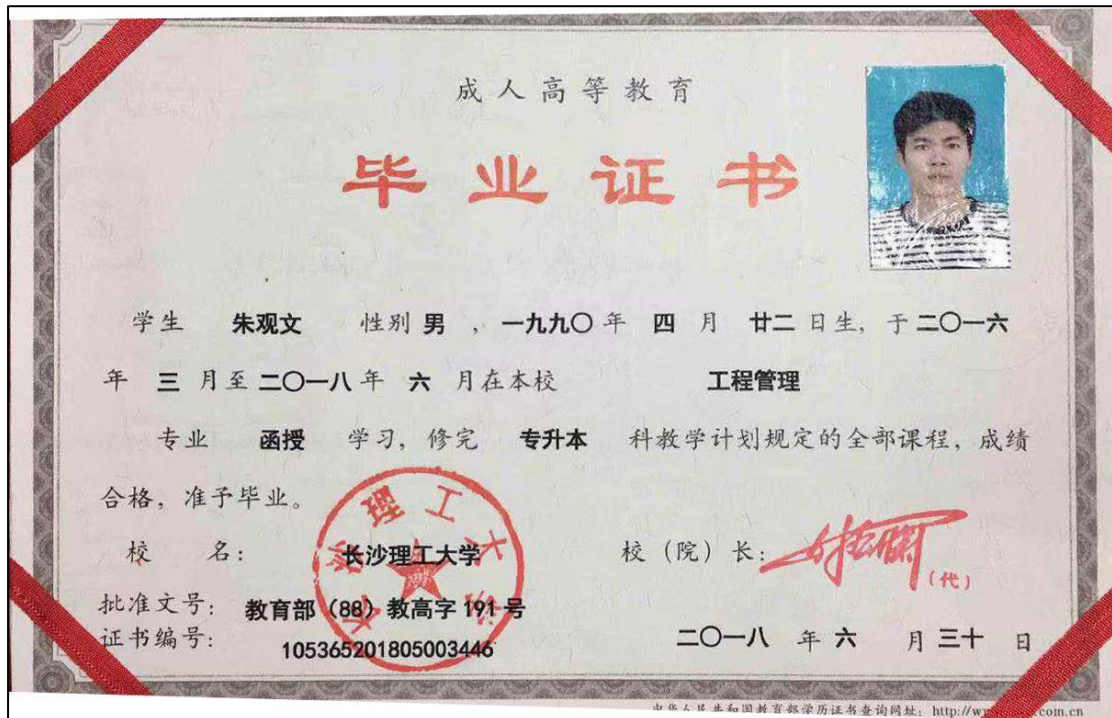 成人高等教育
毕业证书
学生 朱观文 性别 男 ，一九九〇年 四 月 廿二 日生，于二〇一六
年 三 月至二〇一八年 六 月在本校 工程管理
专业 函授 学习，修完 专升本 科教学计划规定的全部课程，成绩
合格，准予毕业。
校 名： 长沙理工大学
校（院）长：
（代）
长沙理工大学
批准文号： 教育部（88）教高字 191 号
证书编号： 105365201805003446
二〇一八 年 六 月 三十 日
中华人民共和国教育部学历证书查询网址：http://
com.cn